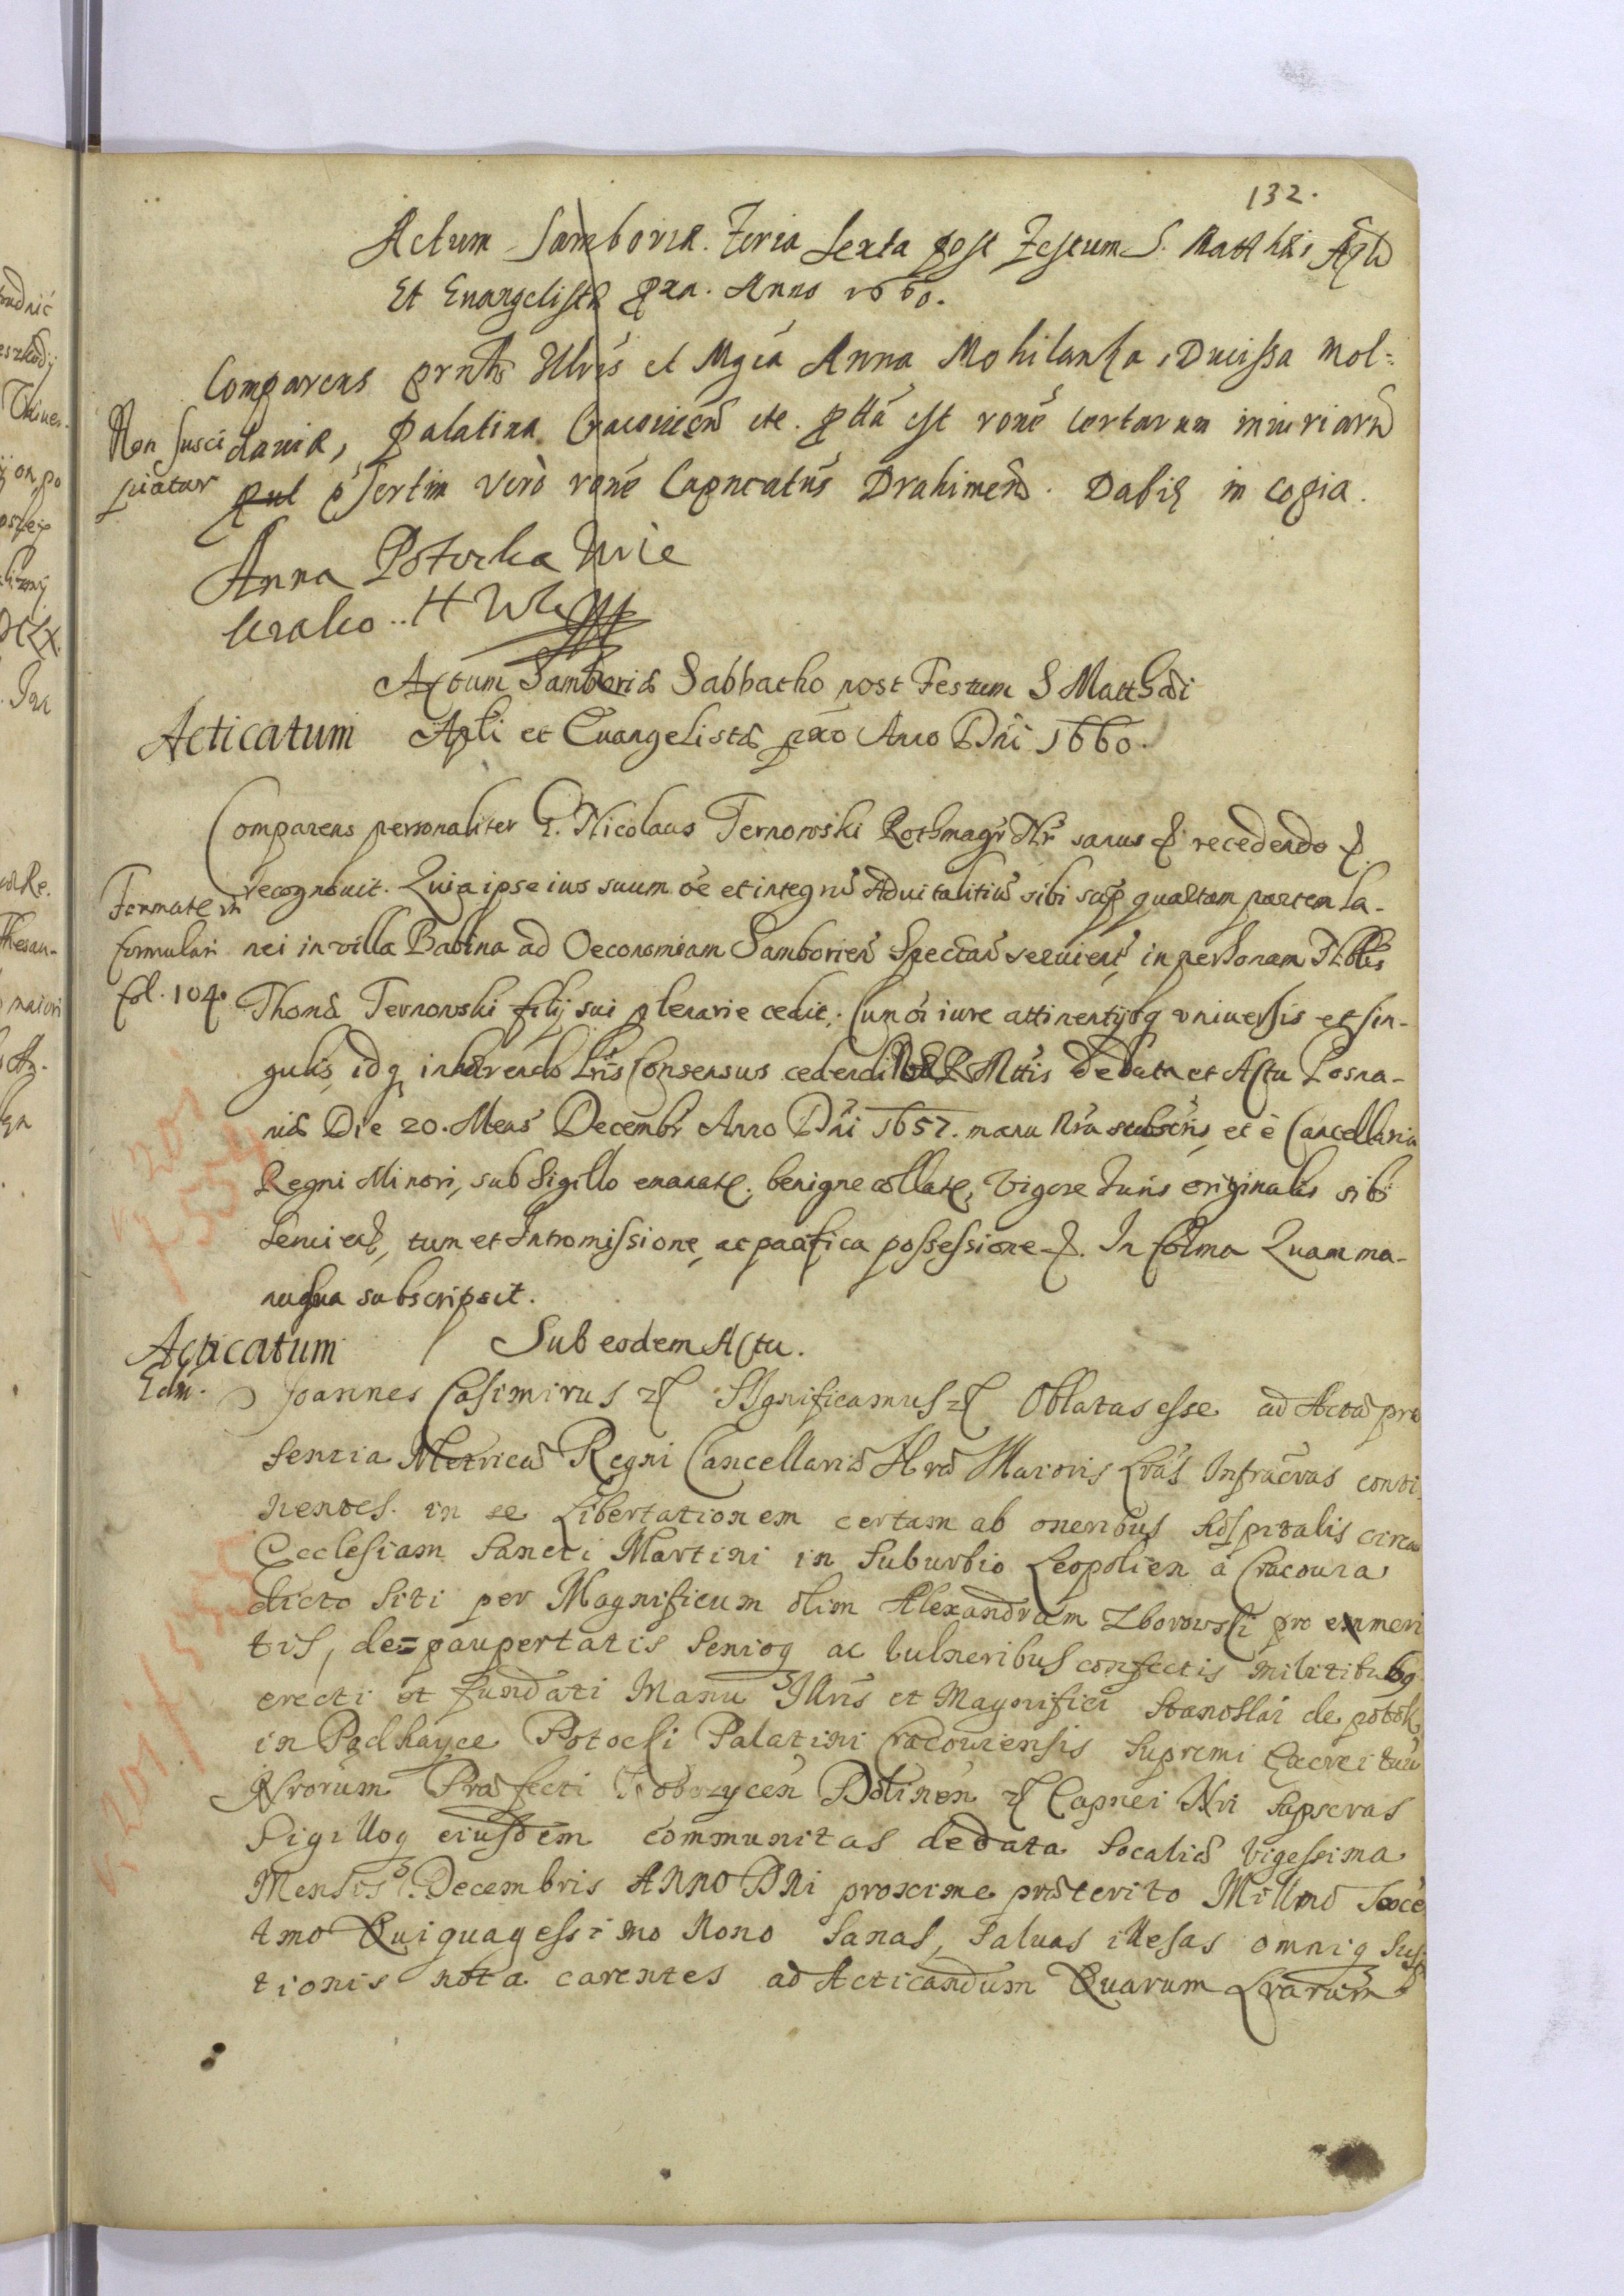 132.
Actum Samboriæ. Feria Sexta post Festum S. Matthæi Apli
Et Euangelistæ pxa. Anno 1660.
Comparens prntr Illris et Mgca Anna Mohilanka, Ducissa Mol=
Non susci
piatur
dauiæ, Palatina Cracouien etc. ptta est rone certarum iniuriaru
psertim verò rone Capneatus Drahimen. Dabit in copia.
Anna Potocka Wie
krako.. H W K
Actum Samboriæ Sabbatho post Festum S Matthæi
Acticatum
Apli et Euangelistæ pxo Anno Dni 1660.
Comparens personaliter G. Nicolaus Ternowski Rothmagr Nr sanus & recedendo &
recognouit. Quia ipse ius suum oe et integru Aduitalitiu sibi sup quartam partem La-
Formate in
formulari
fol. 104.
nei in villa Babina ad Oeconomiam Samborien Spectan seruient, in personam Nblis
Thomæ Ternowski filij sui plenarie cedit, Cum oi iure attinentijsq vniuersis et sin-
gulis, idq inhærendo Lris Consensus cedendi S R Mttis de data et Actu Posna-
niæ Die 20. Mens Decembr Anno Dni 1657. manu Nra subscris, et è Cancellaria
Regni Minori, sub Sigillo emanate, benigne collate, Vigore Iuris originalis sibi
Seruien, tum et Intromissione, ac pacifica possessione &. In forma Quam ma-
nu sua subscripsit.
Acticatum
Sub eodem Actu.
Joannes Casimirus & Significamus & Oblatas esse ad Acta præ
sentia Metricæ Regni Cancellariæ Nræ Maioris Lras Infracras conti
nentes in se Libertationem certam ab oneribus Hospitalis circa
Ecclesiam Sancti Martini in Suburbio Leopolien à Cracouia
dicto Siti per Magnificum olim Alexandrum Zborowski pro emeri
tis, de=paupertatis Senioq ac vulneribus confectis militibusq
erecti et fundati Manu Illris et Magnifici Stanislai de potok
in Podhayce Potocki Palatini Cracouiensis Supremi Exercituu
Nrorum Præfecti Dolinen & Capnei Nri supscras
Sigilloq eiusdem communitas de data Socaliæ Vigessima
Mensis Decembris Anno Dni proxime præterito Millmo Sexce
tmo Quiquagessimo Nono Sanas, Saluas illesas omniq Susp
tionis nota carentes ad Acticandum Quarum Lrarum